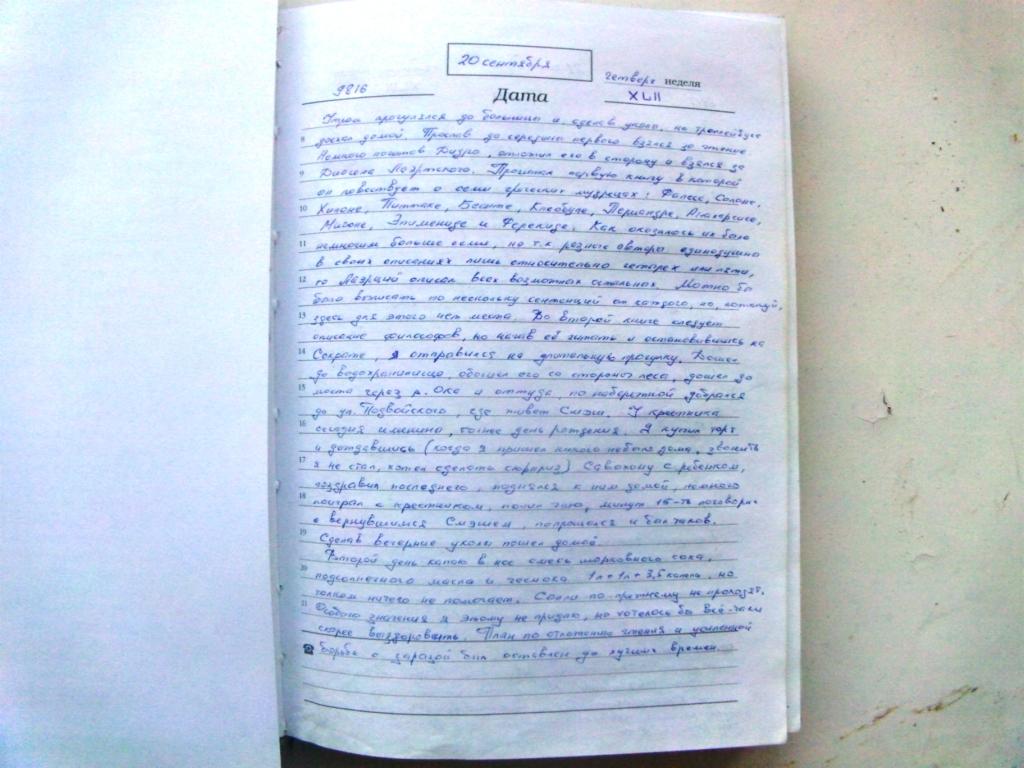 20 сентября
9816
четверг неделя
Дата
XLII
Утром прогулялся до больницы и, сделав укол, на троллейбусе
8 доехал домой. Проспав до середины первого взялся за чтение.
Немного почитав Дидро, отложил его в сторону и взялся за
9 Диогена Лаэртского. Прочитал первую книгу в которой
он повествует о семи греческих мудрецах: Фалесе, Солоне,
10 Хилоне, Питтаке, Бианте, Клеобуле, Периандре, Анахарсисе,
Мисоне, Эпимениде и Ферекиде. Как оказалось их было
11 немногим больше семи, но т.к. разные авторы единодушны
в своих описаниях лишь относительно четырех или пяти,
12 то Лаэрций описал всех возможных остальных. Можно бы
было выписать по нескольку сентенций от каждого, но, пожалуй,
13 здесь для этого нет места. Во второй книге следует
описание философов, но начав её читать и остановившись на
14 Сократе, я отправился на длительную прогулку. Дошел
до водохранилища обошел его со стороны леса, дошел до
15 моста через р. Ока и оттуда, по набережной добрался
до ул. Подвойского, где живет Смэш. У крестника
16 сегодня именины, точнее день рождения. Я купил торт
и дождавшись (когда я пришел никого небыло дома, звонить
17 я не стал, хотел сделать сюрприз) с ребенком,
поздравил последнего, поднялся к ним домой, немного
18 поиграл с крестником, попил чаю, минут 15-ть поговорил
с вернувшимся Смэшем, попрощался и был таков.
19 Сделав вечерние уколы пошел домой.
Второй день капаю в нос смесь морковного сока,
20 подсолнечного масла и чеснока 1л + 1л + 3,5 капли, но
толком ничего не помогает. Сопли по-прежнему не проходят.
21 Особого значения я этому не придаю, но хотелось бы всё-таки
скорее выздороветь. План по отложению чтения и усиленной
борьбе с заразой был оставлен до лучших времен.